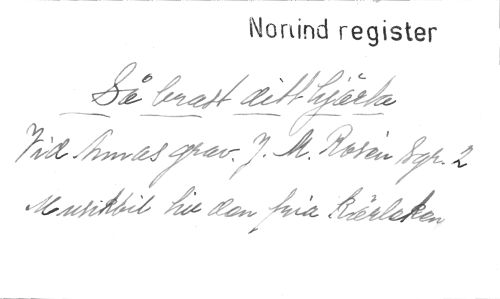 Norlind register
Så brast ditt hjärta
Vid Annas grav. J. M. Rosén Sgr. 2
Musikbil till den fria kärleken